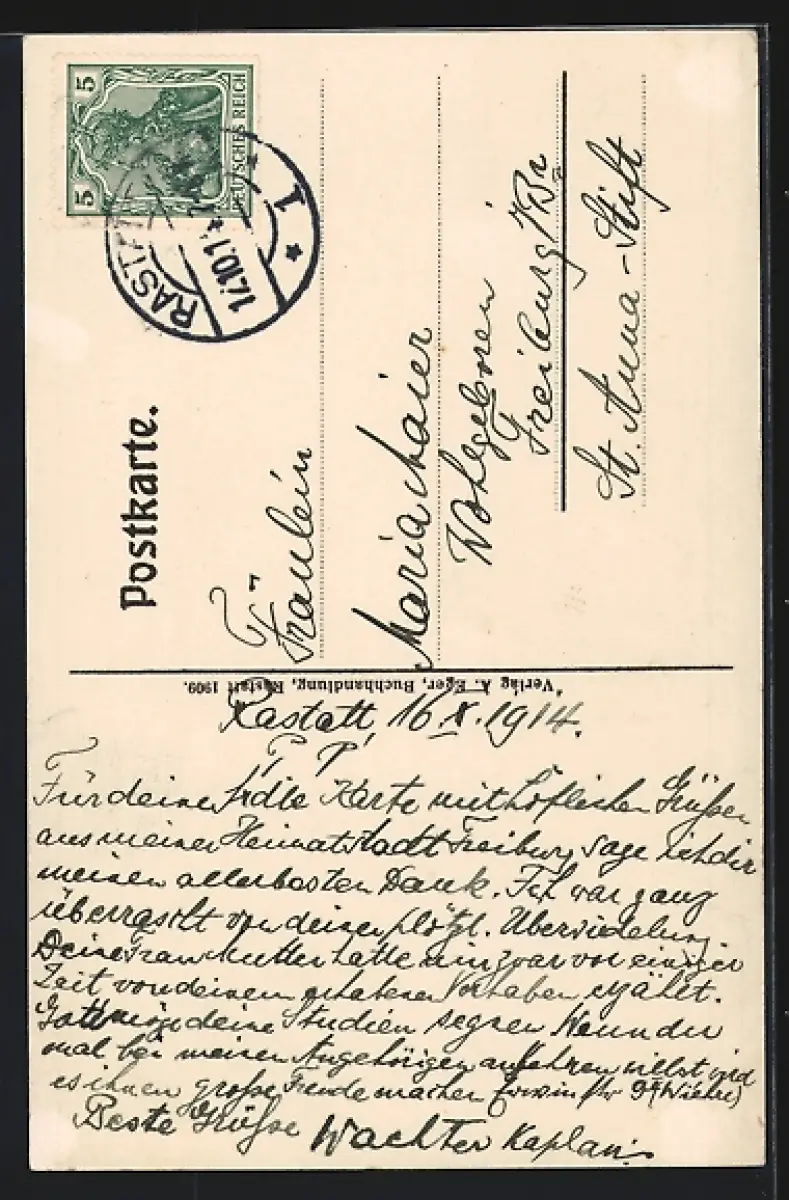 5 5
DEUTSCHES REICH
RASTATT
17.10.14
* 1 *
Postkarte.
Fräulein
Maria Maier
Wohlgeboren
Freiburg i/Br
St. Anna-Stift
Verlag A. Eger, Buchhandlung, Rastatt 1909.
Rastatt, 16.X.1914.
P. P.
Für deine frdle Karte mit höflichen Grüßen
aus meiner Heimatstadt Freiburg sage ich dir
meinen allerbesten Dank. Ich war ganz
überrascht von deiner plötzl. Übersiedelung
Deine Frau Mutter hatte mir zwar vor einiger
Zeit von deinem erhabenen Vorhaben erzählt.
Gott möge deine Studien segnen Wenn du
mal bei meinen Angehörigen willst wird
es ihnen große Freude machen (Erwinstr (Wiehre)
Beste Grüße Wachter Kaplan